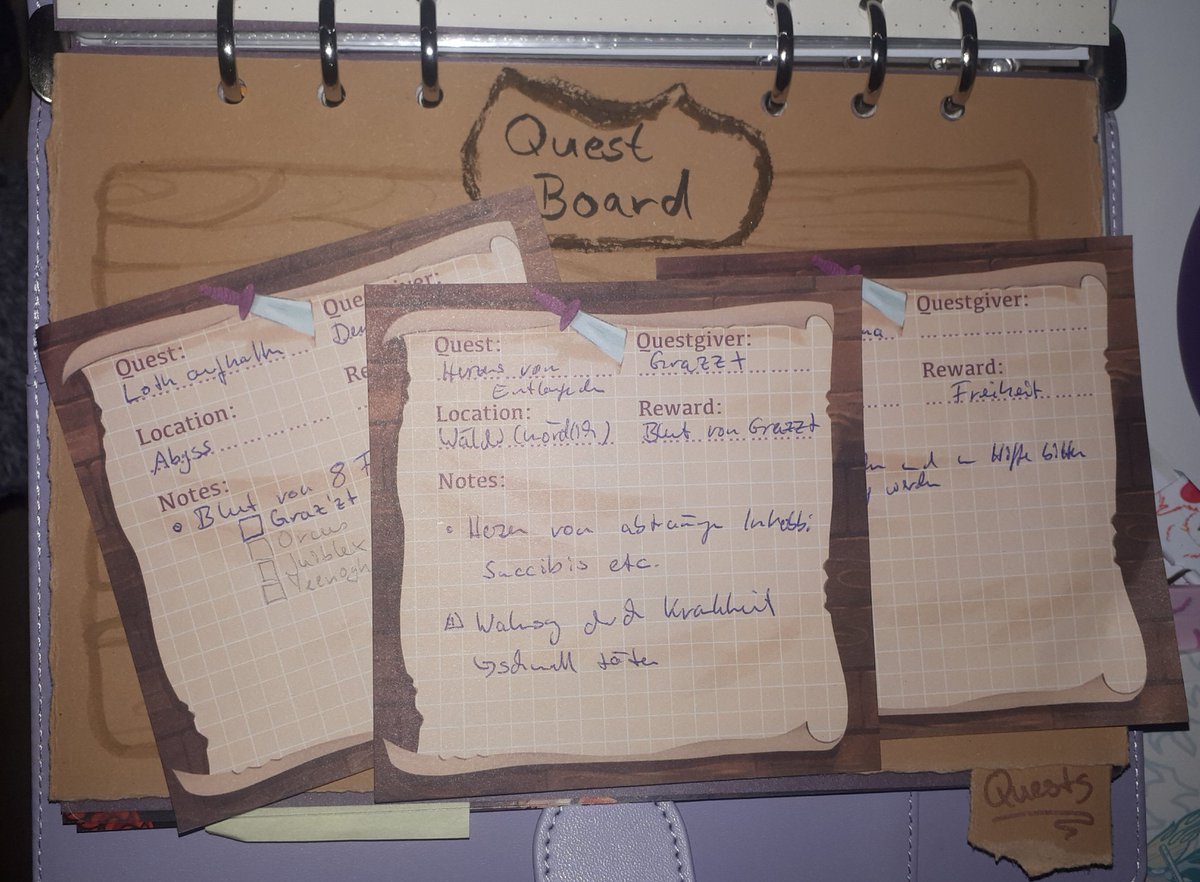 Quest
Board
Quest:
Loth aufhalten
Location:
Abyss
Notes:
• Blut von 8
Graz'zt
Orcus
Juiblex
Yeenogh
Quest:
Herzen von
Questgiver:
Grazzt
Location:
Wälder (nördlich)
Reward:
Blut von Grazzt
Notes:
• Herzen von
Succibis etc.
durch Krankheit
↳ schnell töten
Questgiver:
Reward:
Freiheit
und um Hilfe bitten
werden
Quests